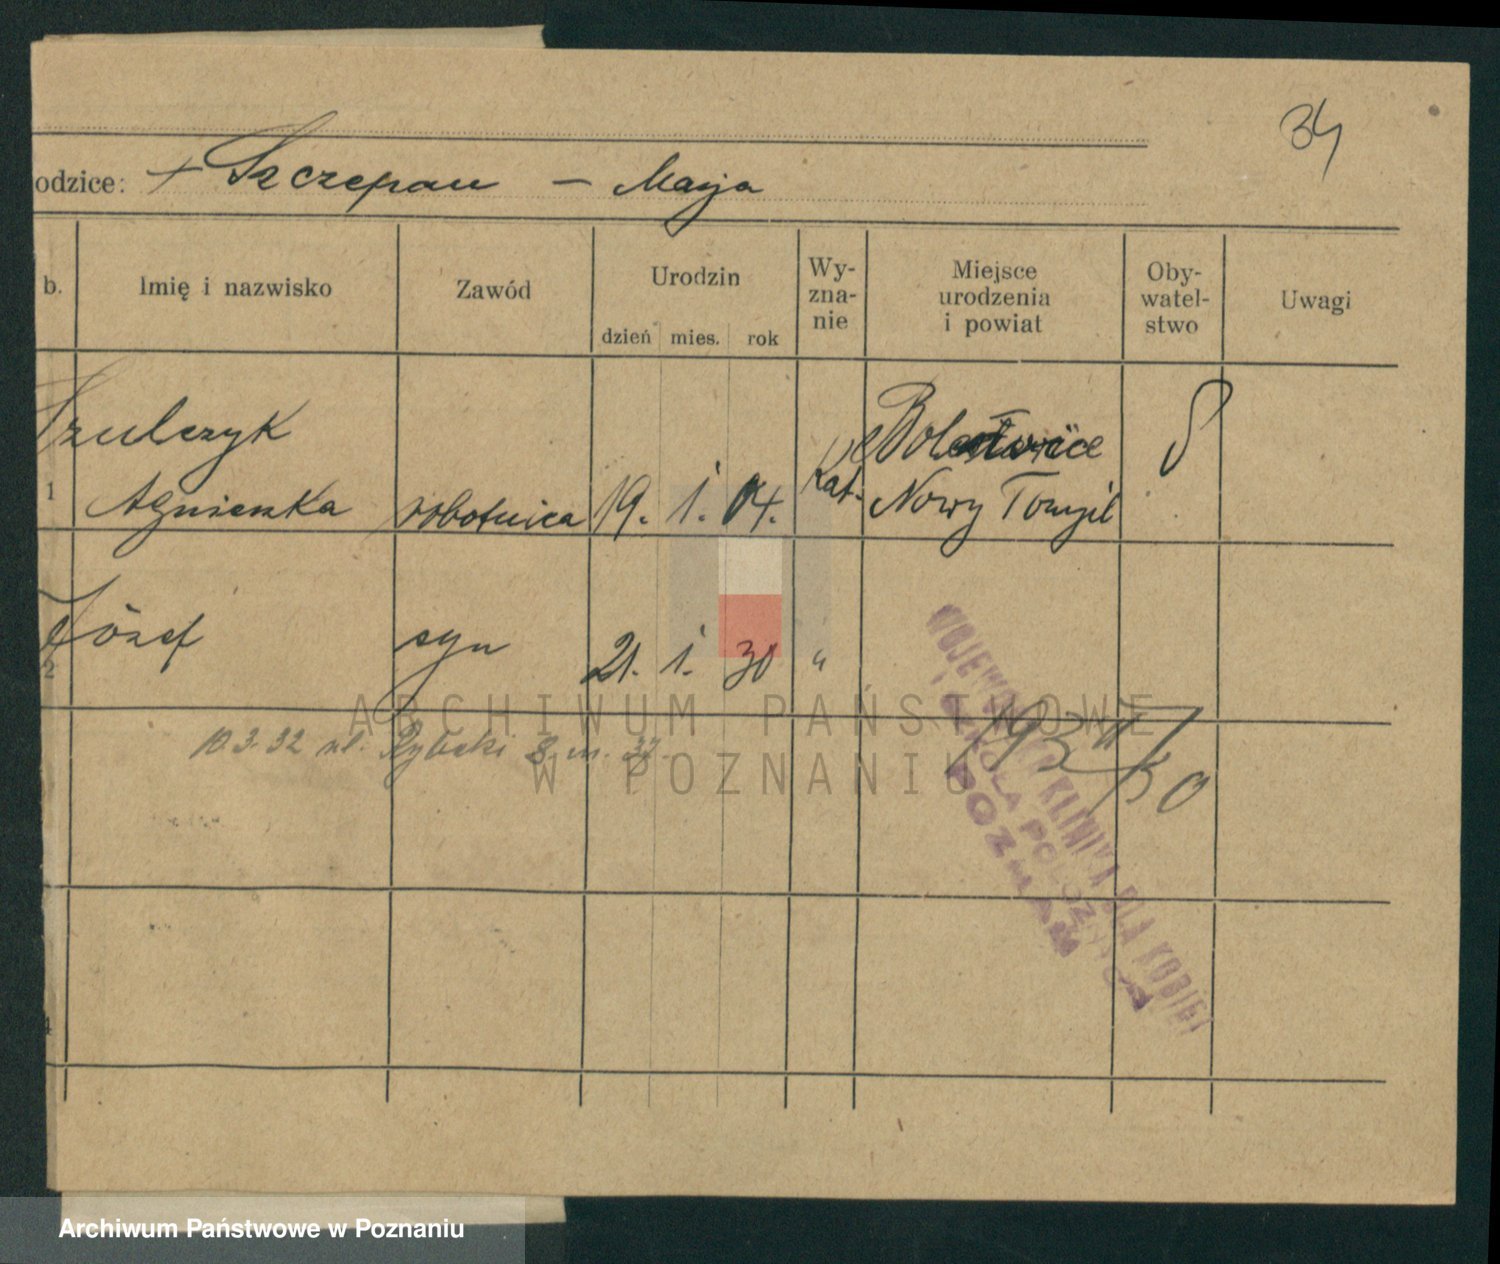 34
odzice: + Szczepan — Marja
b.
Imię i nazwisko
Zawód
Urodzin
dzień mies. rok
Wy-
zna-
nie
Miejsce
urodzenia
i powiat
Oby-
watel-
stwo
Uwagi
Szulczyk
1 Agnieszka robotnica 19. 1. 04. Kat. Nowy Tomyśl
2 Józef syn 21. 1. 30 "
10.3.32 ul. Rybaki 8 m.
WOJEWÓDZKA KLINIKA DLA KOBIET
I SZKOŁA POŁOŻNYCH
POZNAŃ
4
ARCHIWUM PAŃSTWOWE
W POZNANIU
Archiwum Państwowe w Poznaniu